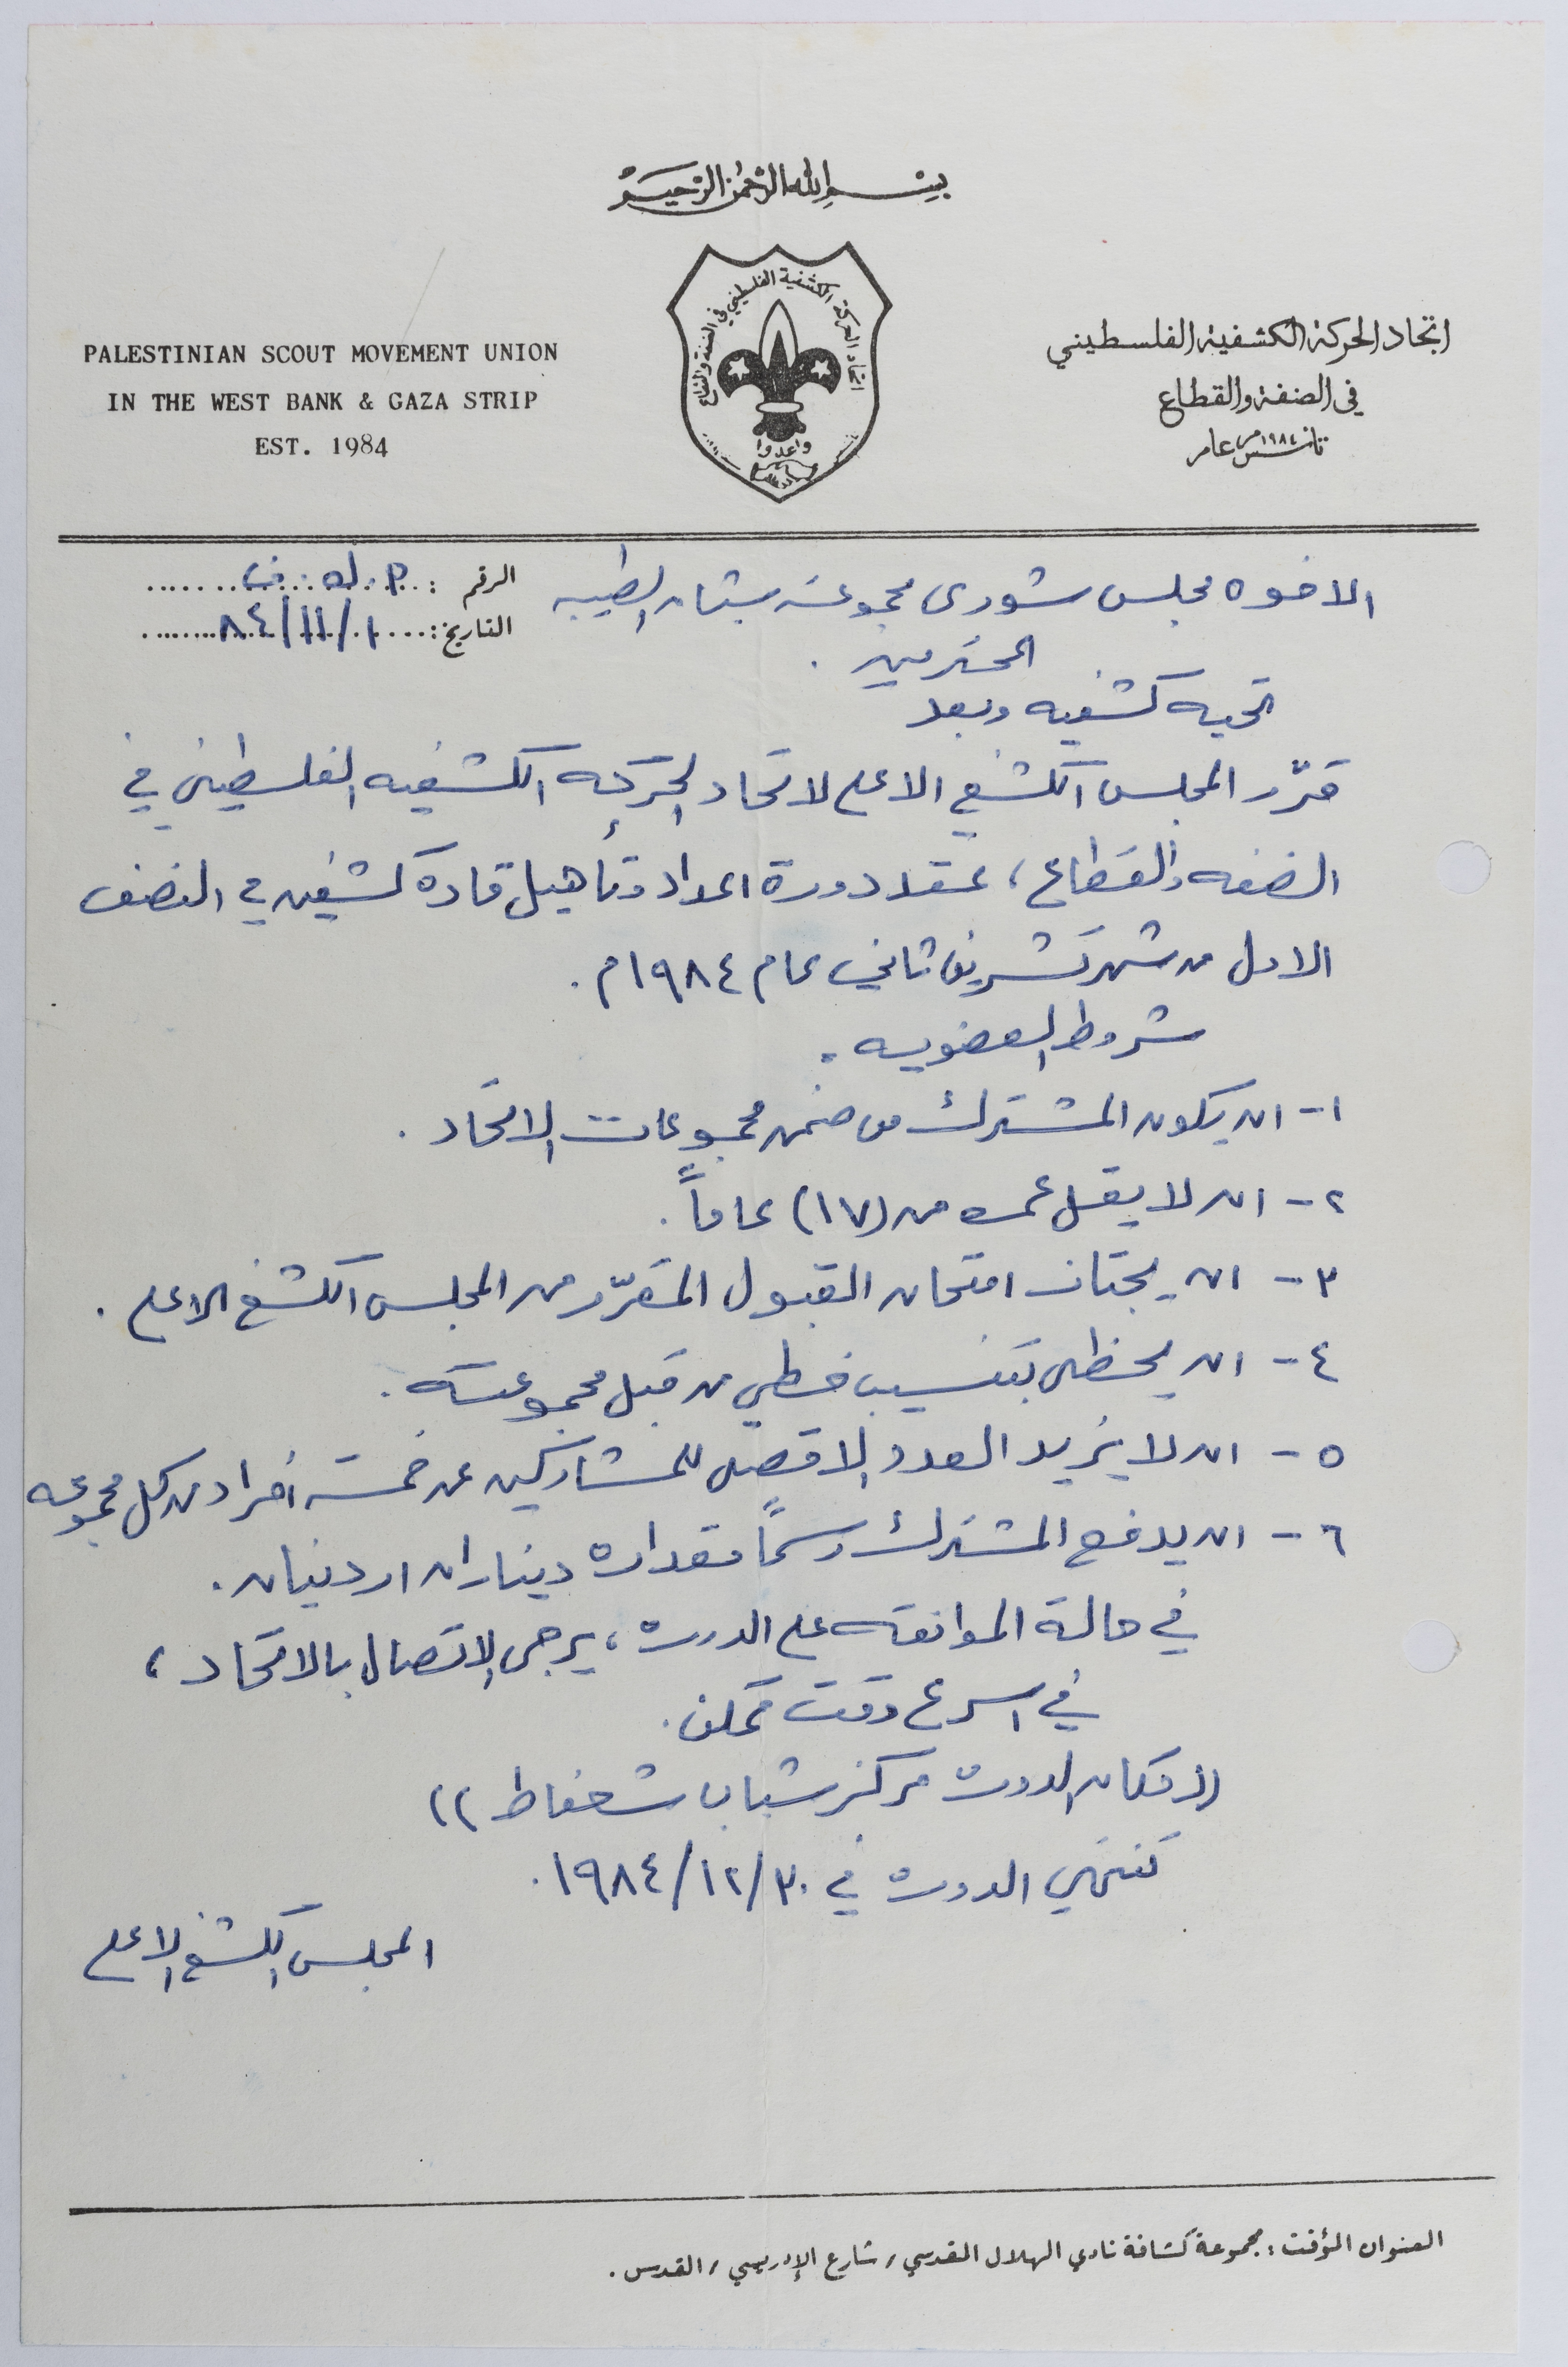 بسم الله الرحمن الرحيم
اتحاد الحركة الكشفية الفلسطيني
في الضفة والقطاع
تأسس عام ١٩٨٤م
PALESTINIAN SCOUT MOVEMENT UNION
IN THE WEST BANK & GAZA STRIP
EST. 1984
اتحاد الحركة الكشفية الفلسطيني في الضفة والقطاع
واعدوا
الرقم : م.ك.ف
التاريخ : ١/١١/٨٤
الاخوه مجلس شورى مجموعة شبان الطيبه
المحترمين .
تحيه كشفيه وبعد
قرّر المجلس الكشفي الاعلى لاتحاد الحركه الكشفيه الفلسطيني في
الضفه والقطاع، عقد دورة اعداد وتأهيل قادة كشفيين في النصف
الاول من شهر تشرين ثاني عام ١٩٨٤م .
شروط العضويه .
١- ان يكون المشترك من ضمن مجموعات الاتحاد .
٢- ان لا يقل عمره من (١٧) عاماً .
٣- ان يجتاز امتحان القبول المقرّر من المجلس الكشفي الاعلى .
٤- ان يحظى بتنسيب خطي من قبل مجموعته .
٥- ان لا يزيد العدد الاقصى للمشاركين عن خمسة افراد من كل مجموعه
٦- ان يدفع المشترك رسماً مقداره ديناران اردنيان .
في حالة الموافقه على الدوره، يرجى الاتصال بالاتحاد،
في اسرع وقت ممكن .
((مكان الدوره مركز شباب شعفاط))
تنتهي الدوره في ٣٠/١٢/١٩٨٤ .
المجلس الكشفي الاعلى
العنوان المؤقت : مجموعة كشافة نادي الهلال المقدسي / شارع الإدريسي / القدس .